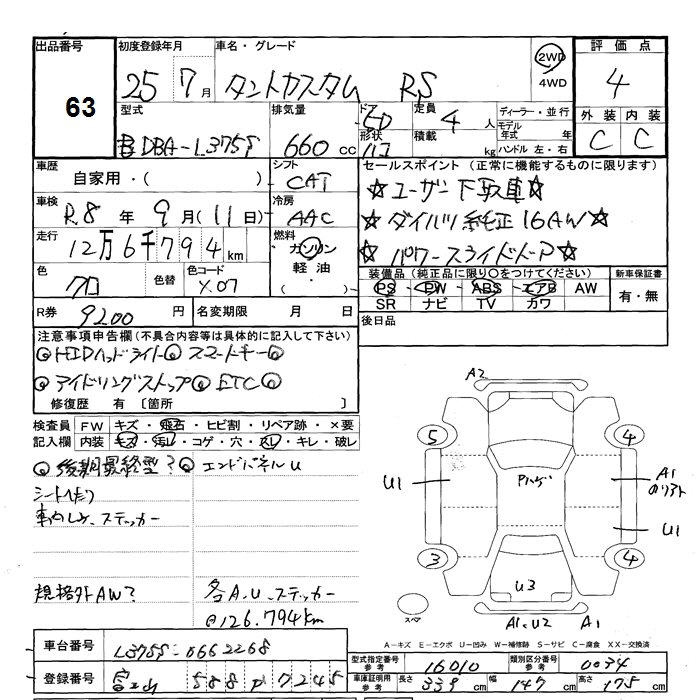 出品番号
63
初度登録年月
25 7月
車名・グレード
タントカスタム RS
2WD
4WD
評価点
4
外装 内装
C C
型式
DBA-L375S
排気量
660 cc
ドア
5D
形状
ハコ
定員
4人
積載
kg
ディーラー・並行
モデル年式 年
ハンドル 左・右
車歴
自家用・( )
シフト
CAT
車検
R.8年 9月(11日)
冷房
AAC
走行
12万6千794km
燃料
ガソリン
軽油
・( )
色
クロ
色替
色コード
X07
R券
9200円
名変期限 月 日
セールスポイント (正常に機能するものに限ります)
☆ユーザー下取車☆
☆ダイハツ純正16AW☆
☆パワースライドドア☆
装備品(純正品に限り○をつけてください)
PS PW ABS エアB AW
SR ナビ TV カワ
新車保証書
有・無
後日品
注意事項申告欄(不具合内容等は具体的に記入して下さい)
◎HIDヘッドライト◎ スマートキー◎
◎アイドリングストップ◎ETC◎
修復歴 有〔箇所 〕
検査員記入欄
FW キズ・飛石・ヒビ割・リペア跡・×要
内装 キズ・汚れ・コゲ・穴・スレ・キレ・破レ
◎後期最終型? ◎エンドパネルU
シートヘタリ
車内しみ、ステッカー
規格外AW?
各A.U.ステッカー
@126.794km
A2
5 4
U1
A1
U1
3 4
U3
スペア
A1.U2 A1
A-キズ E-エクボ U-凹み W-補修跡 S-サビ C-腐食 XX-交換済
車台番号
L375S-0662268
登録番号
富山 588 7245
型式指定番号 参考
16010
類別区分番号 参考
0034
車庫証明用 参考
長さ 339cm 幅 147cm 高さ 175cm